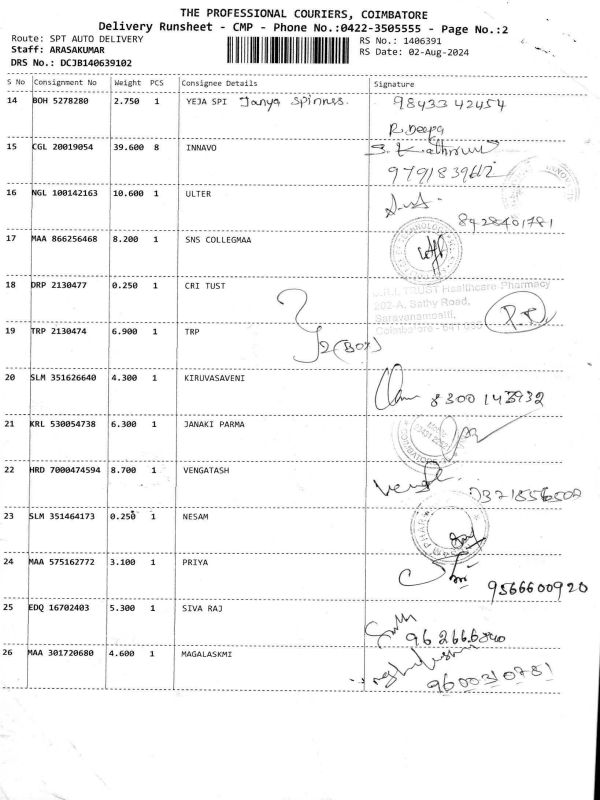 THE PROFESSIONAL COURIERS, COIMBATORE
Delivery Runsheet - CMP - Phone No.:0422-3505555 - Page No.:2
Route: SPT AUTO DELIVERY RS No.: 1406391
Staff: ARASAKUMAR RS Date: 02-Aug-2024
DRS No.: DCJB140639102
S No Consignment No Weight PCS Consignee Details Signature
14 BOH 5278280 2.750 1 YEJA SPI Tanya Spinnes. 98433 42454
R. Deepa
15 CGL 20019054 39.600 8 INNAVO
9791839612
16 NGL 100142163 10.600 1 ULTER
8428401781
17 MAA 866256468 8.200 1 SNS COLLEGMAA
18 DRP 2130477 0.250 1 CRI TUST
TRUST Healthcare Pharmacy
202-A, Sathy Road,
Saravanampatti,
19 TRP 2130474 6.900 1 TRP
2 (BOX)
20 SLM 351626640 4.300 1 KIRUVASAVENI
8300 143932
21 KRL 530054738 6.300 1 JANAKI PARMA
22 HRD 7000474594 8.700 1 VENGATASH
23 SLM 351464173 0.250 1 NESAM
24 MAA 575162772 3.100 1 PRIYA
9566600920
25 EDQ 16702403 5.300 1 SIVA RAJ
26 MAA 301720680 4.600 1 MAGALASKMI
9600310781